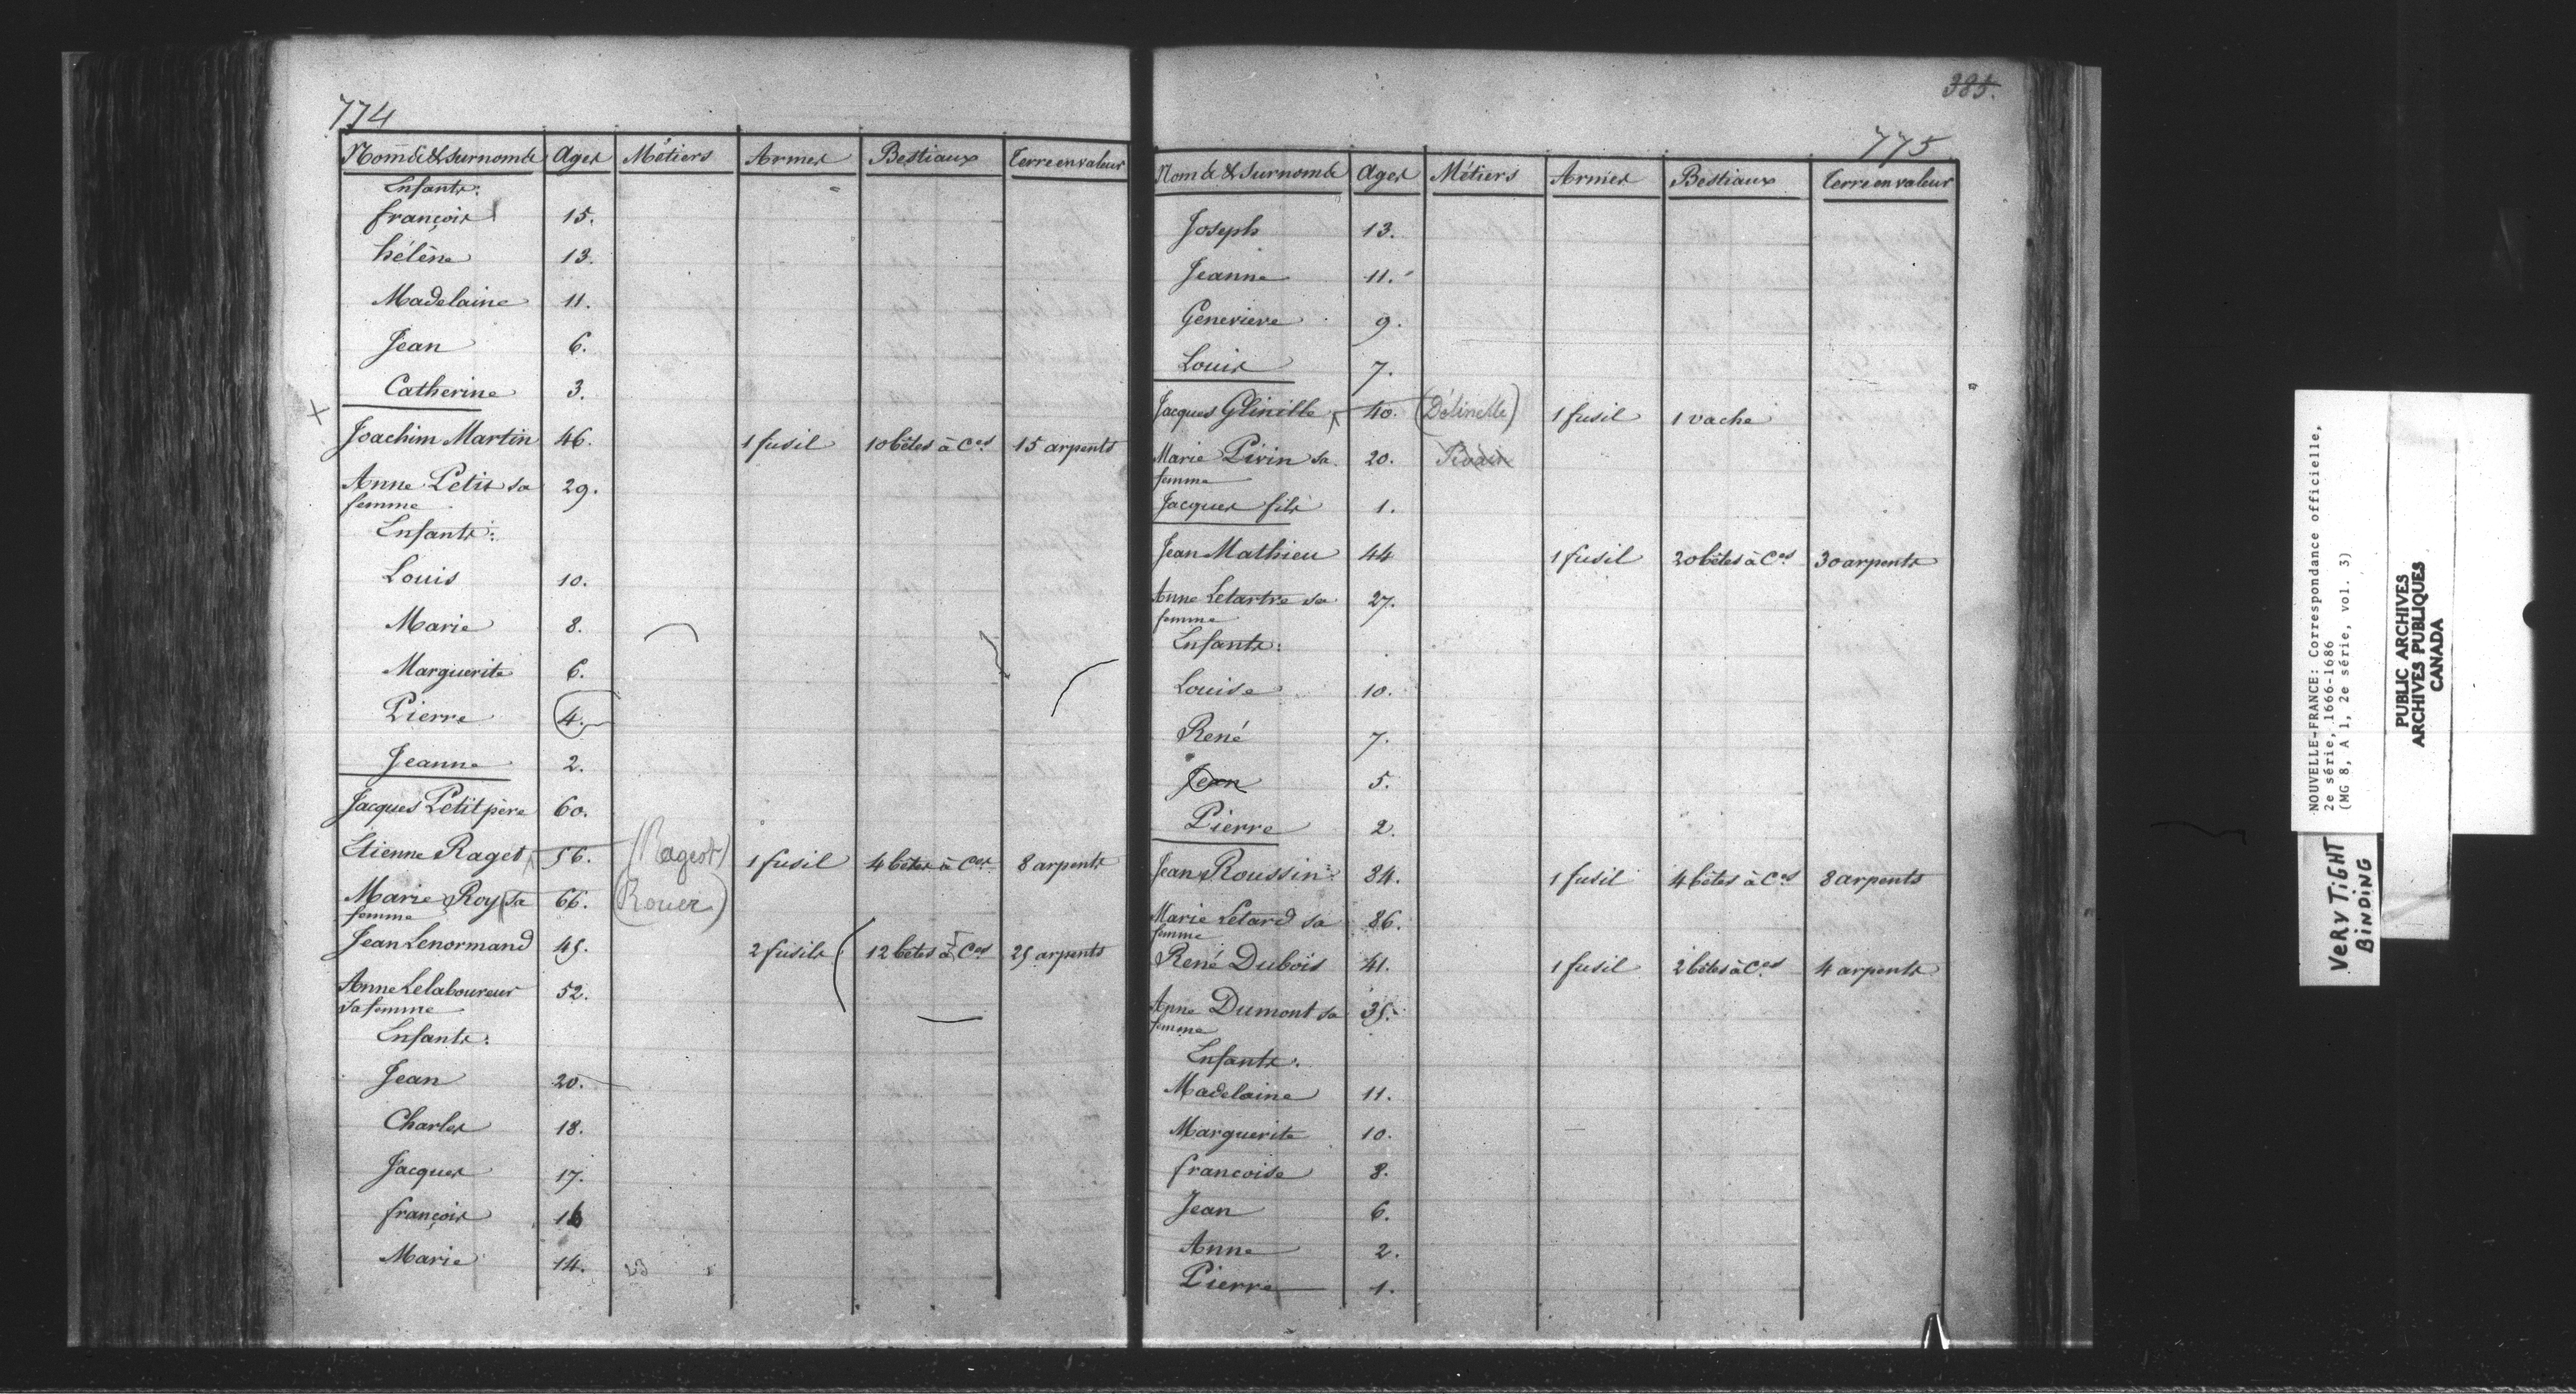 774
Noms & Surnoms Ages Métiers Armes Bestiaux Terre en valeur
Enfants:
françois 15.
hélène 13.
Madelaine 11.
Jean 6.
Catherine 3.
X Joachim Martin 46. 1 fusil 10 bêtes à Ces 15 arpents
Anne Petit sa 29.
femme
Enfants:
Louis 10.
Marie 8.
Marguerite 6.
Pierre 4.
Jeanne 2.
Jacques Petit père 60.
Etienne Raget 56. (Rageot) 1 fusil 4 bêtes à Ces 8 arpents
Marie Roy sa 66. (Rouer)
femme
Jean Lenormand 45. 2 fusils 12 bêtes à Ces 25 arpents
Anne Lelaboureur 52.
sa femme
Enfants:
Jean 20.
Charles 18.
Jacques 17.
françois 16
Marie 14.
385.
775
Noms & Surnoms Ages Métiers Armes Bestiaux Terre en valeur
Joseph 13.
Jeanne 11.
Genevieve 9.
Louis 7.
Jacques Glinille 40. (Délinelle) 1 fusil 1 vache
Marie Pivin sa 20.
femme
Jacques fils 1.
Jean Mathieu 44 1 fusil 20 bêtes à Ces 30 arpents
Anne Letartre sa 27.
femme
Enfants:
Louise 10.
René 7.
Jean 5.
Pierre 2.
Jean Roussin 84. 1 fusil 4 bêtes à Ces 8 arpents
Marie Letard sa 86.
femme
René Dubois 41. 1 fusil 2 bêtes à Ces 4 arpents
Anne Dumont sa 35.
femme
Enfants:
Madelaine 11.
Marguerite 10.
francoise 8.
Jean 6.
Anne 2.
Pierre 1.
NOUVELLE-FRANCE: Correspondance officielle,
2e série, 1666-1686
(MG 8, A 1, 2e série, vol. 3)
PUBLIC ARCHIVES
ARCHIVES PUBLIQUES
CANADA
VERY TIGHT
BINDING